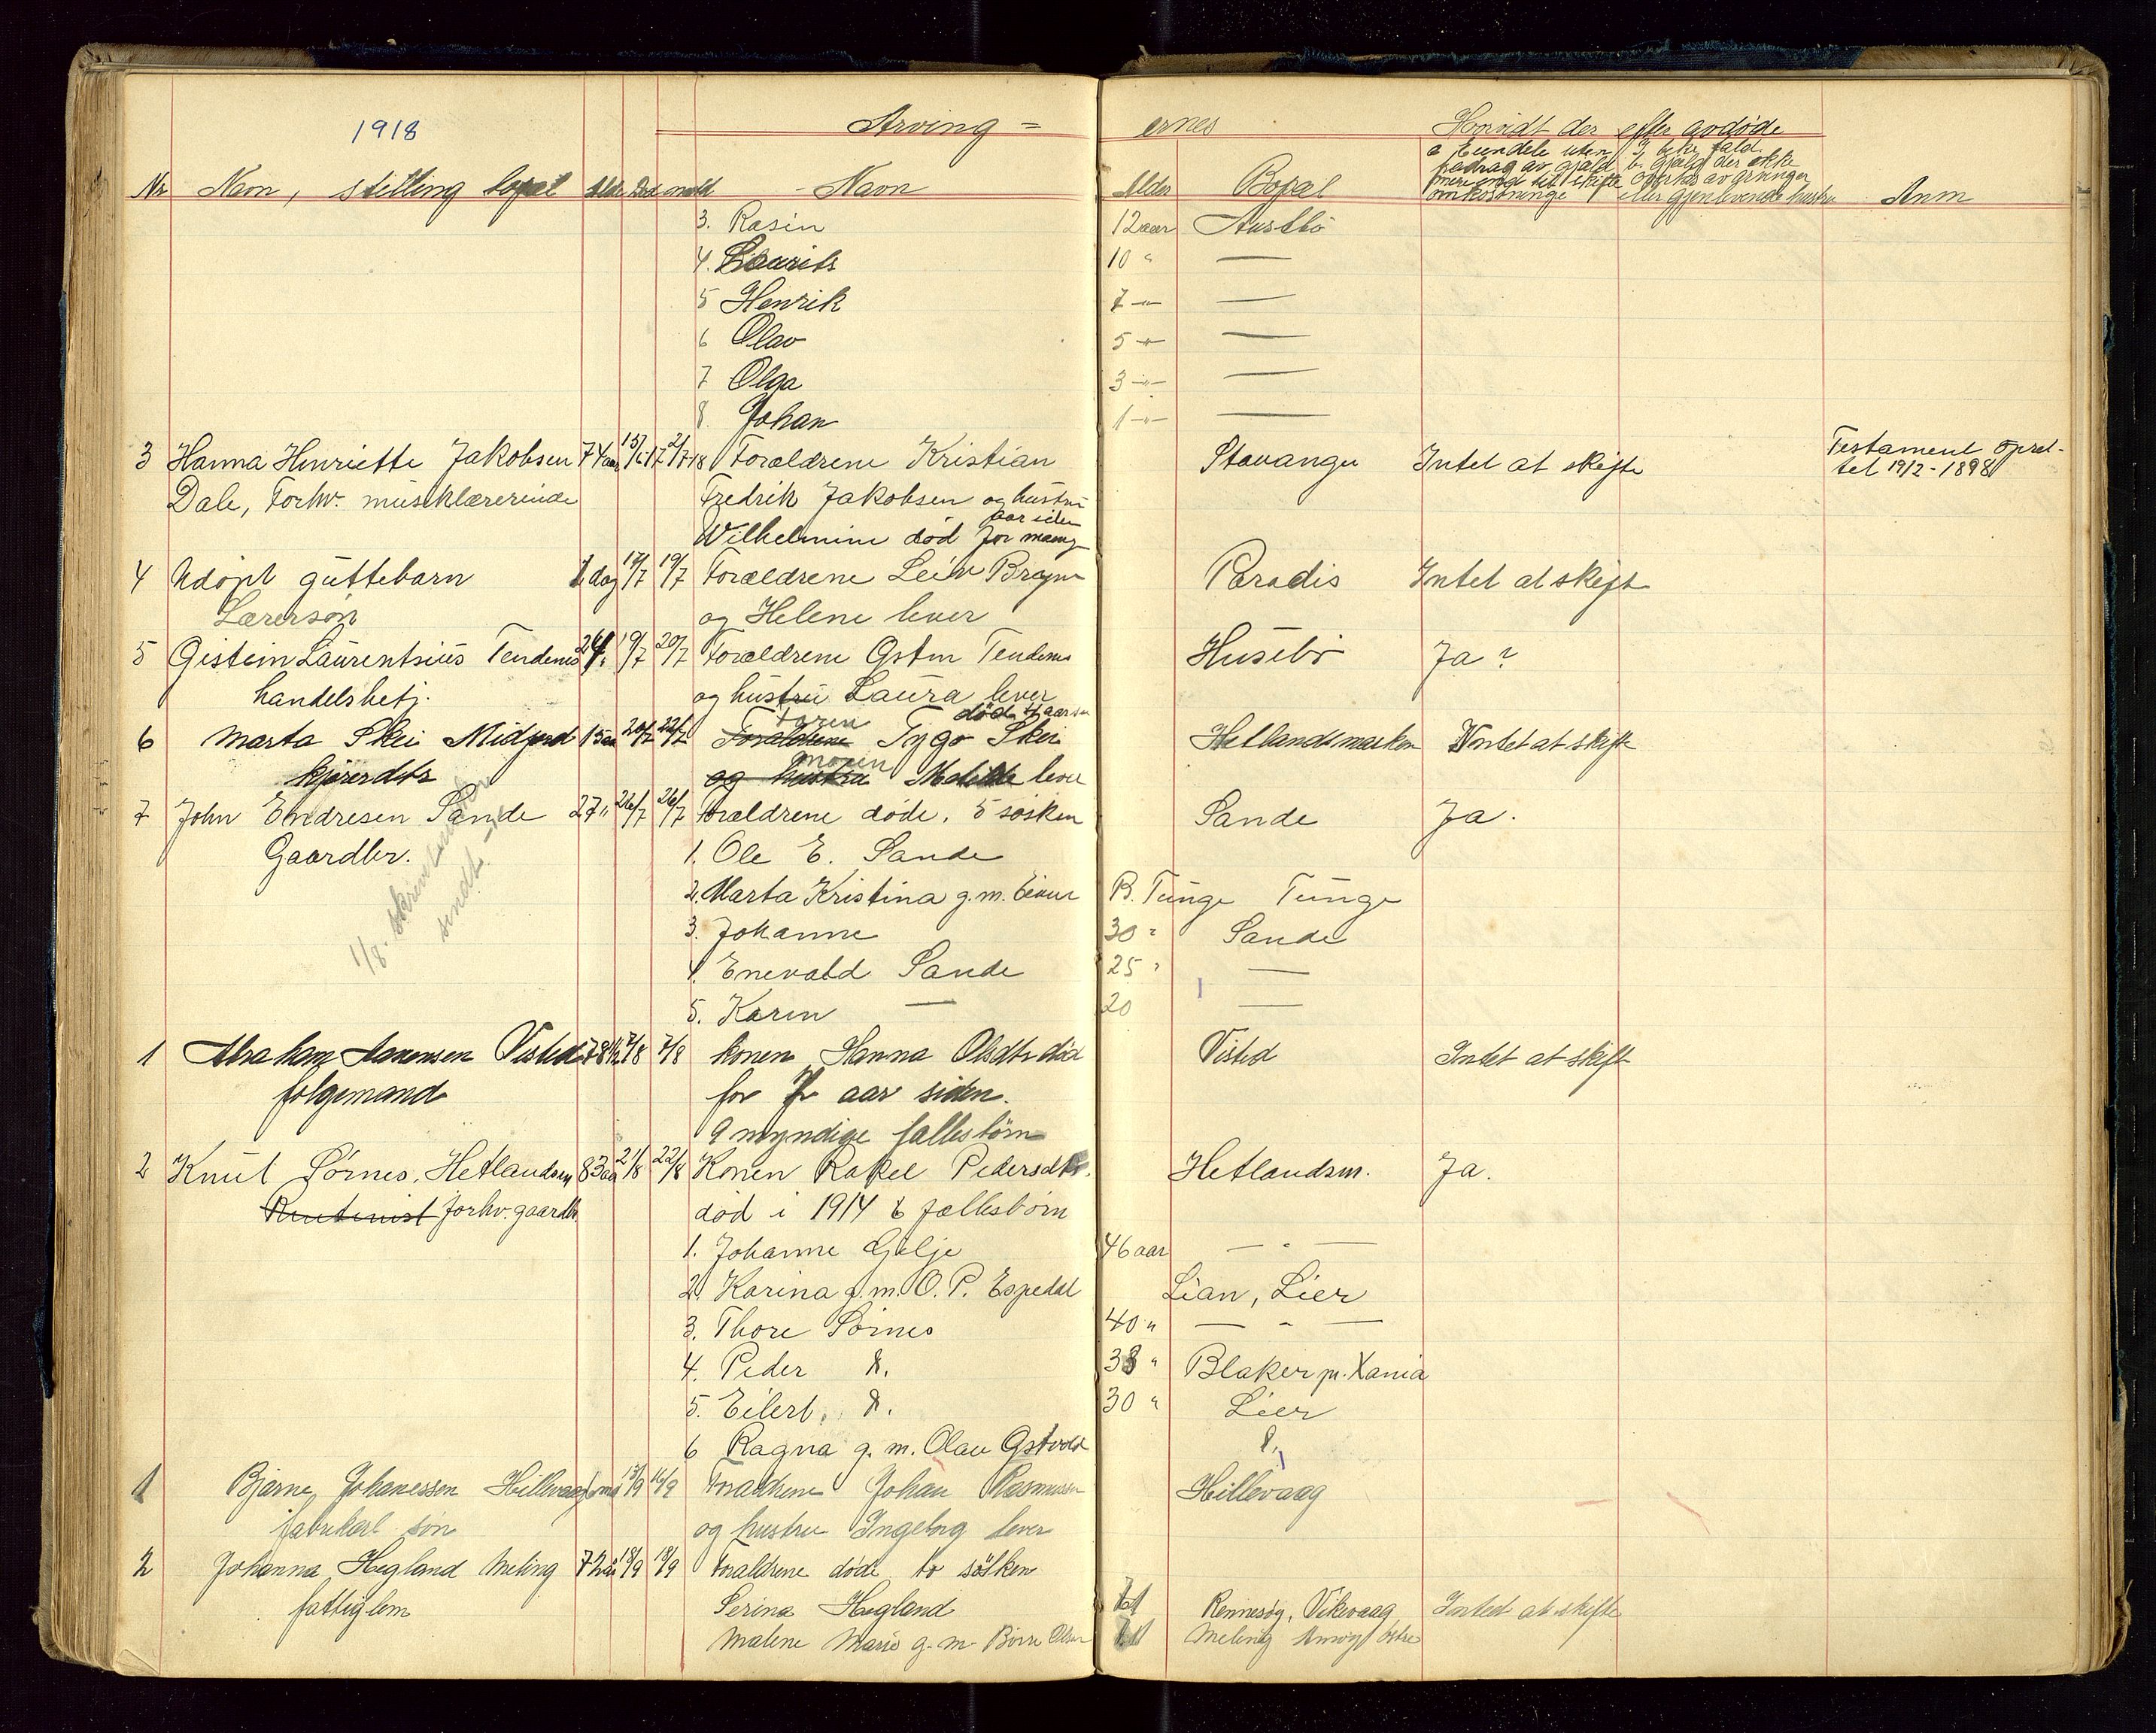 1918 Arving = ernes Hvorvidt der efter avdøde
Nr Navn, stilling bopæl Alder Død meldt Navn Alder Bopæl Anm
3. Rasin 12 aar Austbø
4. Laurits 10 " —
5 Henrik 7 -"- —
6 Olav 5 -"- —
7 Olga 3 -"- —
8. Johan 1 -"- —
3 Hanna Henriette Jakobsen 74 aar 2/7-18 Forældrene Kristian Stavanger Intet at skifte Testament opret-
tet 19/2-1898
Dale, Forhv. musiklærerinde Fredrik Jakobsen og hustru
Wilhelmine død for mang aar siden
4 Udøpt guttebarn 1 dag 17/7 19/7 Forældrene Leiv Bryn Paradis Intet at skift
Lærersøn og Helene lever
5 Gistein Laurentsius Tendenes 24 19/7 20/7 Forældrene Ostin Tendenes Husebø Ja ?
handelsbetj. og hustru Laura lever
6 Marta Skei Midjord 15 aar 20/7 22/7 Forældrene Faren Tygo Skei død aar sn Hetlandsmarken Intet at skifte
kjørerdtr og hustru moren Matilde lever
7 John Endresen Sande 27 " 26/7 26/7 Forældrene døde. 5 søsken Sande Ja.
Gaardbr. 1. Ole E. Sande
2. Marta Kristina g.m. Eivin B. Tunge Tunge
1/8. sendt
3. Johanne 30 " Sande
4. Enevald Sande 25 " —
5. Karin — 20 —
1 Abraham Aanensen Visted 78 7/8 7/8 konen Hanna Olsdtr død Visted Intet at skift
følgemand for aar siden.
9 myndige fællesbørn
2 Knut Sørnes, Hetlandsm 83 aar 21/8 22/8 Konen Rakel Pedersdtr. Hetlandsm. Ja.
Rentenist forhv. gaardb. død i 1914 6 fællesbørn
1. Johanne Gilje 46 aar — " —
2. Karina g.m. O. P. Espedal Lian, Lier
3. Thore Sørnes 40 " — " —
4. Peder d. 38 " Blaker pr. Xania
5. Eilert, d. 30 " Lier
6 Ragna g. m. Olau Østvold d.
1 Bjarne Johanessen Hillevaag 13/9 16/9 Forældrene Johan Rasmussen Hillevaag
fabrikarb. søn og hustru Ingeborg lever
2 Johanna Hegland Meling 72 aar 18/9 18/9 Forældrene døde to søsken
fattiglem Serina Hegland Rennesøy, Vikevaag Intet at skifte
Malene Marie g. m. Børre Olsen Meling Amøy østre